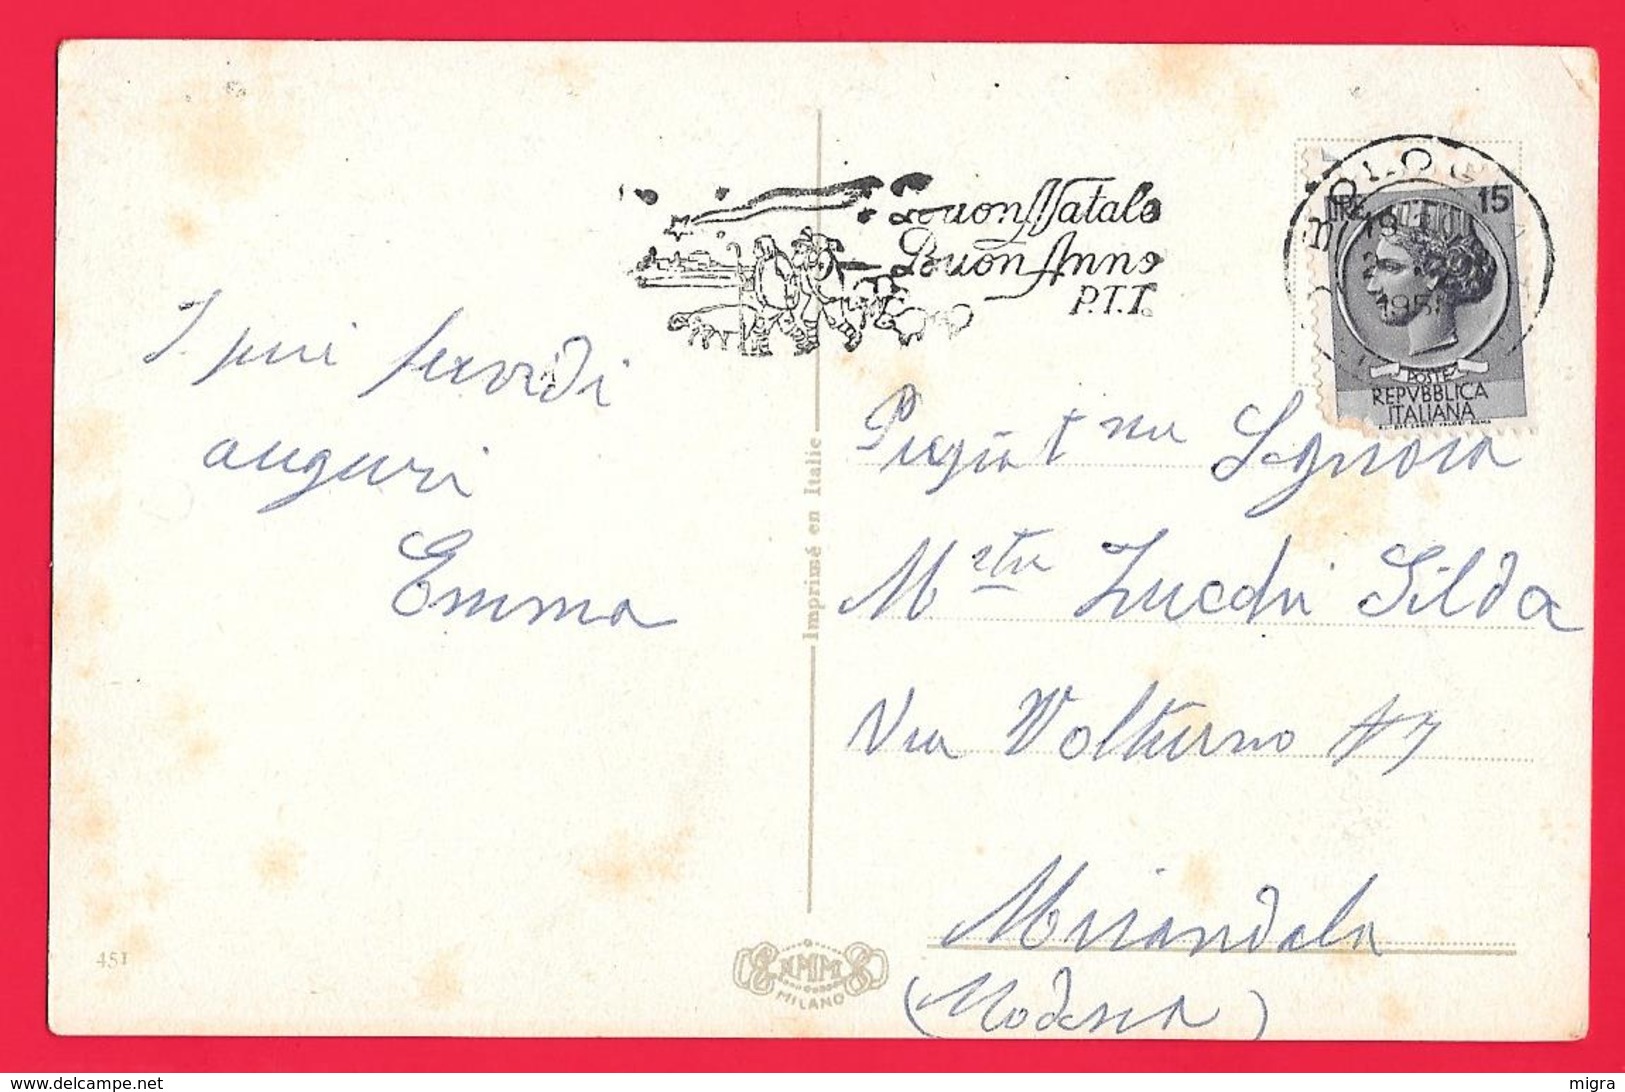 Buon Natale
Buon Anno
P.T.T.
BOLOGNA
LIRE 15
19
195
POSTE
REPVBBLICA
ITALIANA
I più fervidi
auguri
Emma
Imprimé en Italie
Pregiat ma Signora
M stra Zucchi Gilda
Via Volturno 47
Mirandola
(Modena)
451
MILANO
migra
www.delcampe.net